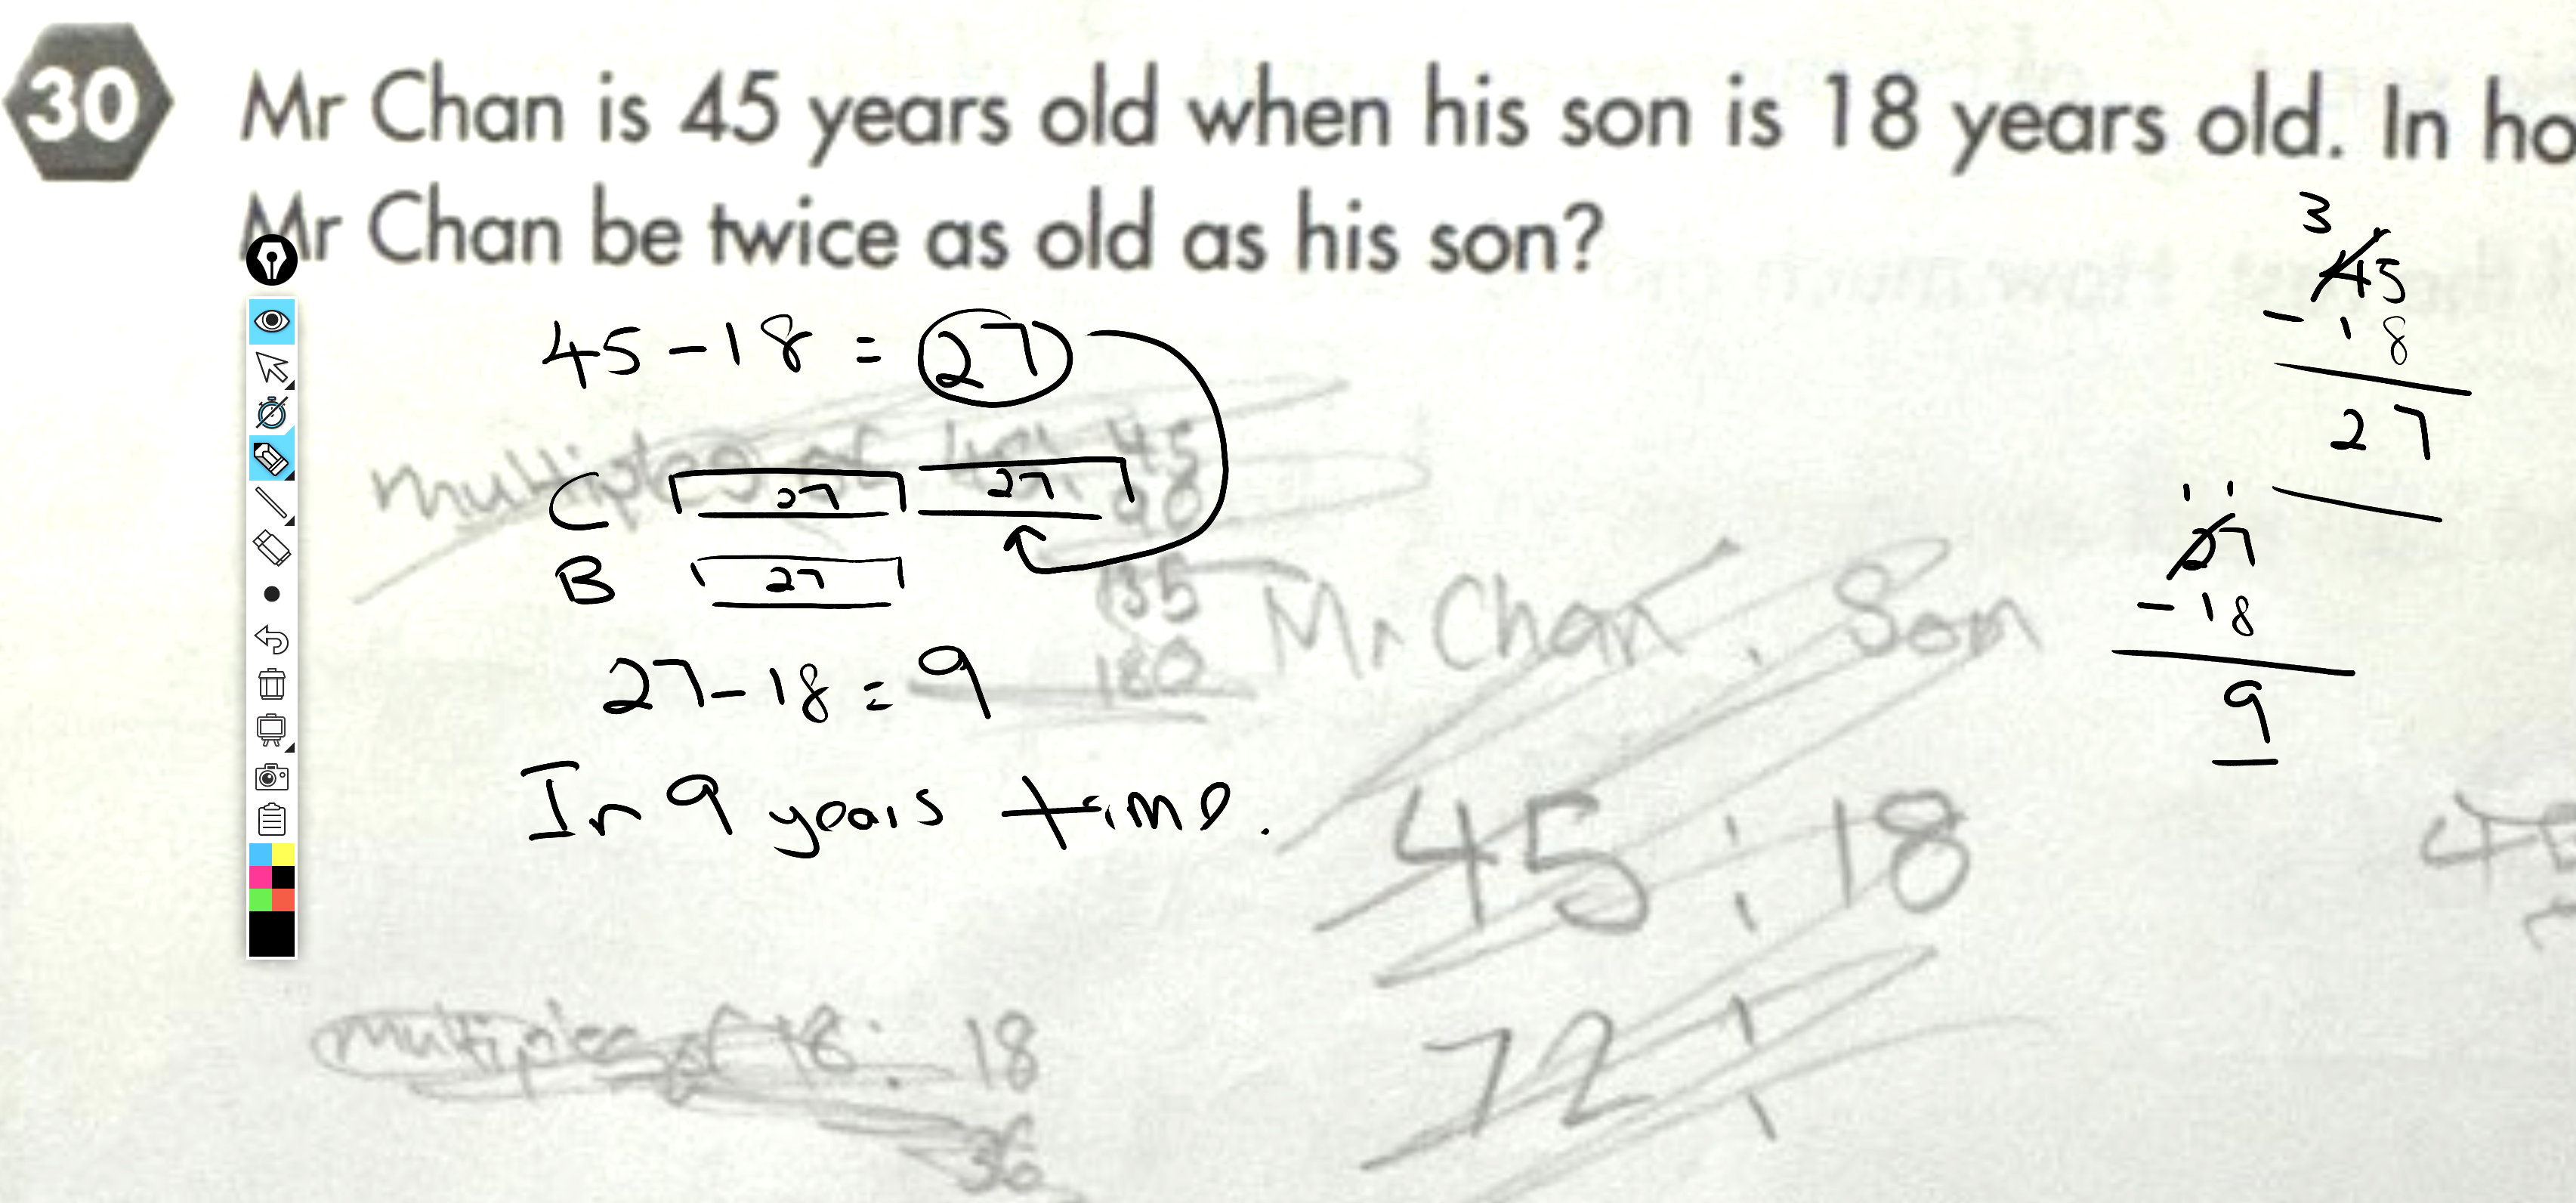 30 Mr Chan is 45 years old when his son is 18 years old. In ho
Mr Chan be twice as old as his son?
45 - 18 = 27
multiples of 45
90
C 27 27
B 27
135
180
27 - 18 = 9
In 9 years time.
Mr Chan : Son
45 : 18
72 :
multiples of 18: 18
36
3
45
- 18
27
1 1
27
- 18
9